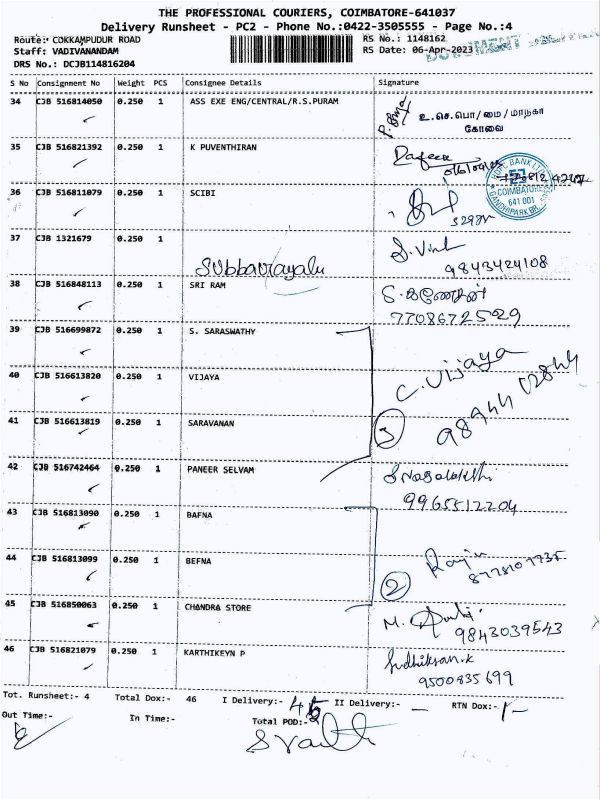 THE PROFESSIONAL COURIERS, COIMBATORE-641037
Delivery Runsheet - PC2 - Phone No.:0422-3505555 - Page No.:4
Route: COKKAMPUDUR ROAD RS No.: 1148162
Staff: VADIVANANDAM RS Date: 06-Apr-2023
DRS No.: DCJB114816204
S No Consignment No Weight PCS Consignee Details Signature
34 CJB 516814050 0.250 1 ASS EXE ENG/CENTRAL/R.S.PURAM
உ.செ.பொ/மை/மாநகர
கோவை
35 CJB 516821392 0.250 1 K PUVENTHIRAN
HDFC BANK LTD
COIMBATORE
641 001
GANDHIPARK BR.
36 CJB 516811079 0.250 1 SCIBI
37 CJB 1321679 0.250 1 Subbarayalu
9843424108
38 CJB 516848113 0.250 1 SRI RAM S. கணேசன்
7708672529
39 CJB 516699872 0.250 1 S. SARASWATHY
40 CJB 516613820 0.250 1 VIJAYA C. Vijaya
98944 02844
41 CJB 516613819 0.250 1 SARAVANAN 3
42 CJB 516742464 0.250 1 PANEER SELVAM
9965512204
43 CJB 516813090 0.250 1 BAFNA
44 CJB 516813099 0.250 1 BEFNA 2
45 CJB 516850063 0.250 1 CHANDRA STORE M.
9843039543
46 CJB 516821079 0.250 1 KARTHIKEYN P Sudhiksan.K
9500835699
Tot. Runsheet:- 4 Total Dox:- 46 I Delivery:- II Delivery:- RTN Dox:-
Out Time:- In Time:- Total POD:-